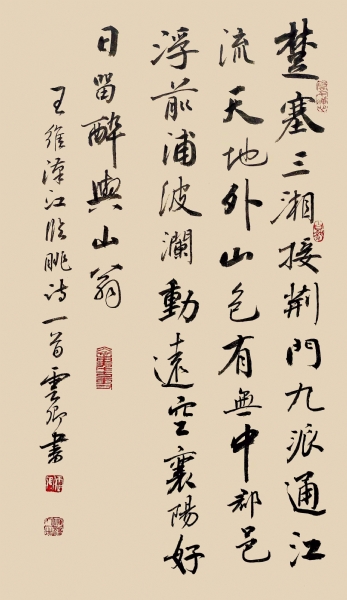 楚塞三湘接荆門九派通江
流天地外山色有無中郡邑
浮前浦波瀾動遠空襄陽好
日留醉與山翁
王維漢江临眺诗一首雲卿書